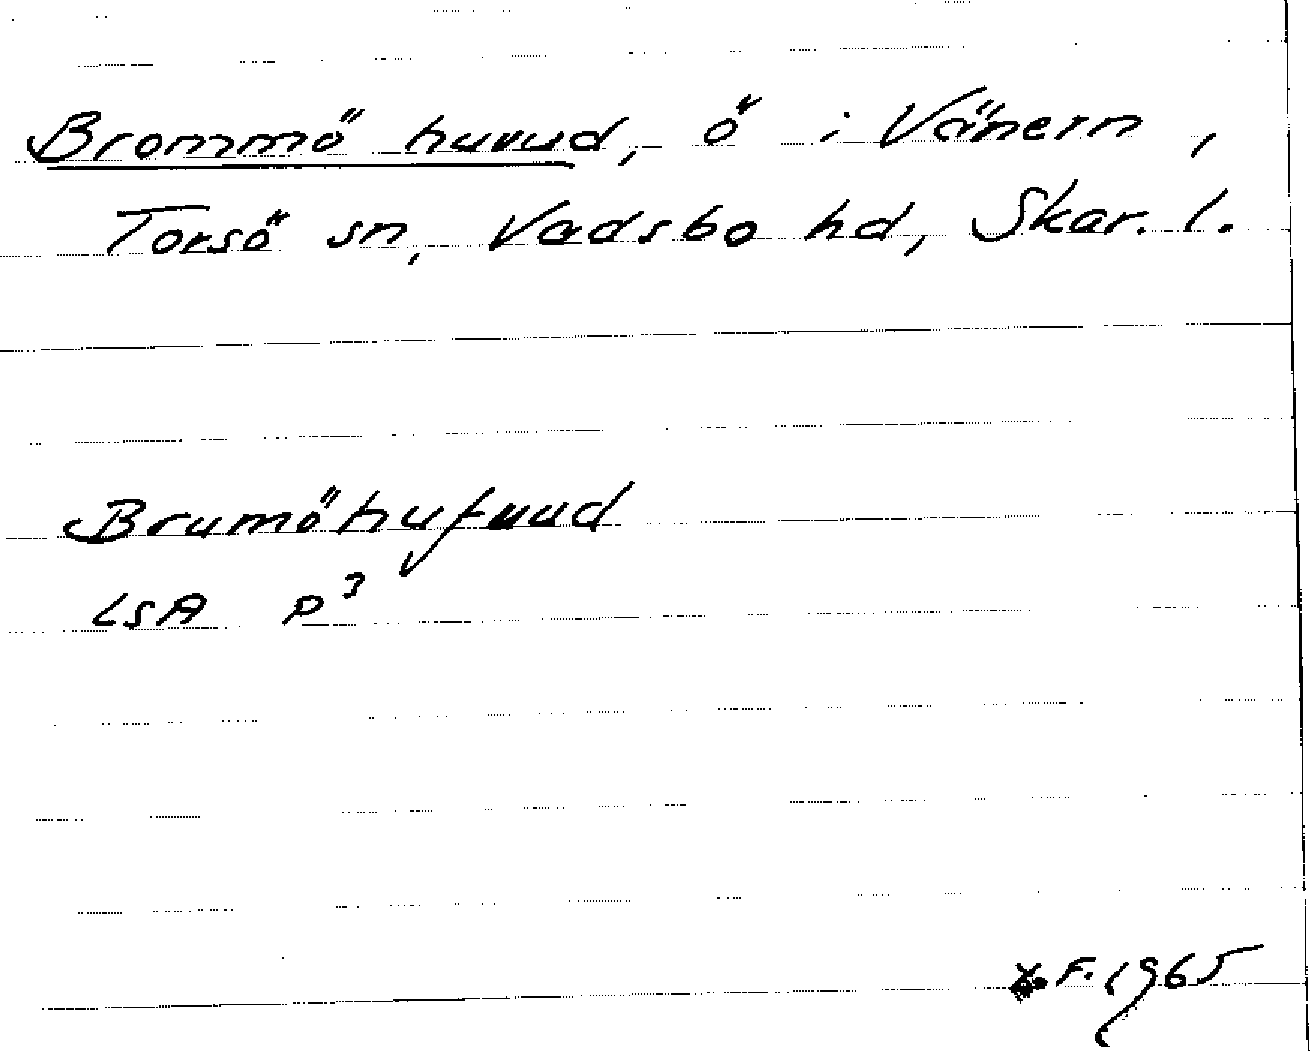 Brommö huvud, ö i Vänern,
Torsö sn, Vadsbo hd, Skar. l.
Brumöhufuud
LSA P³
F. 1965